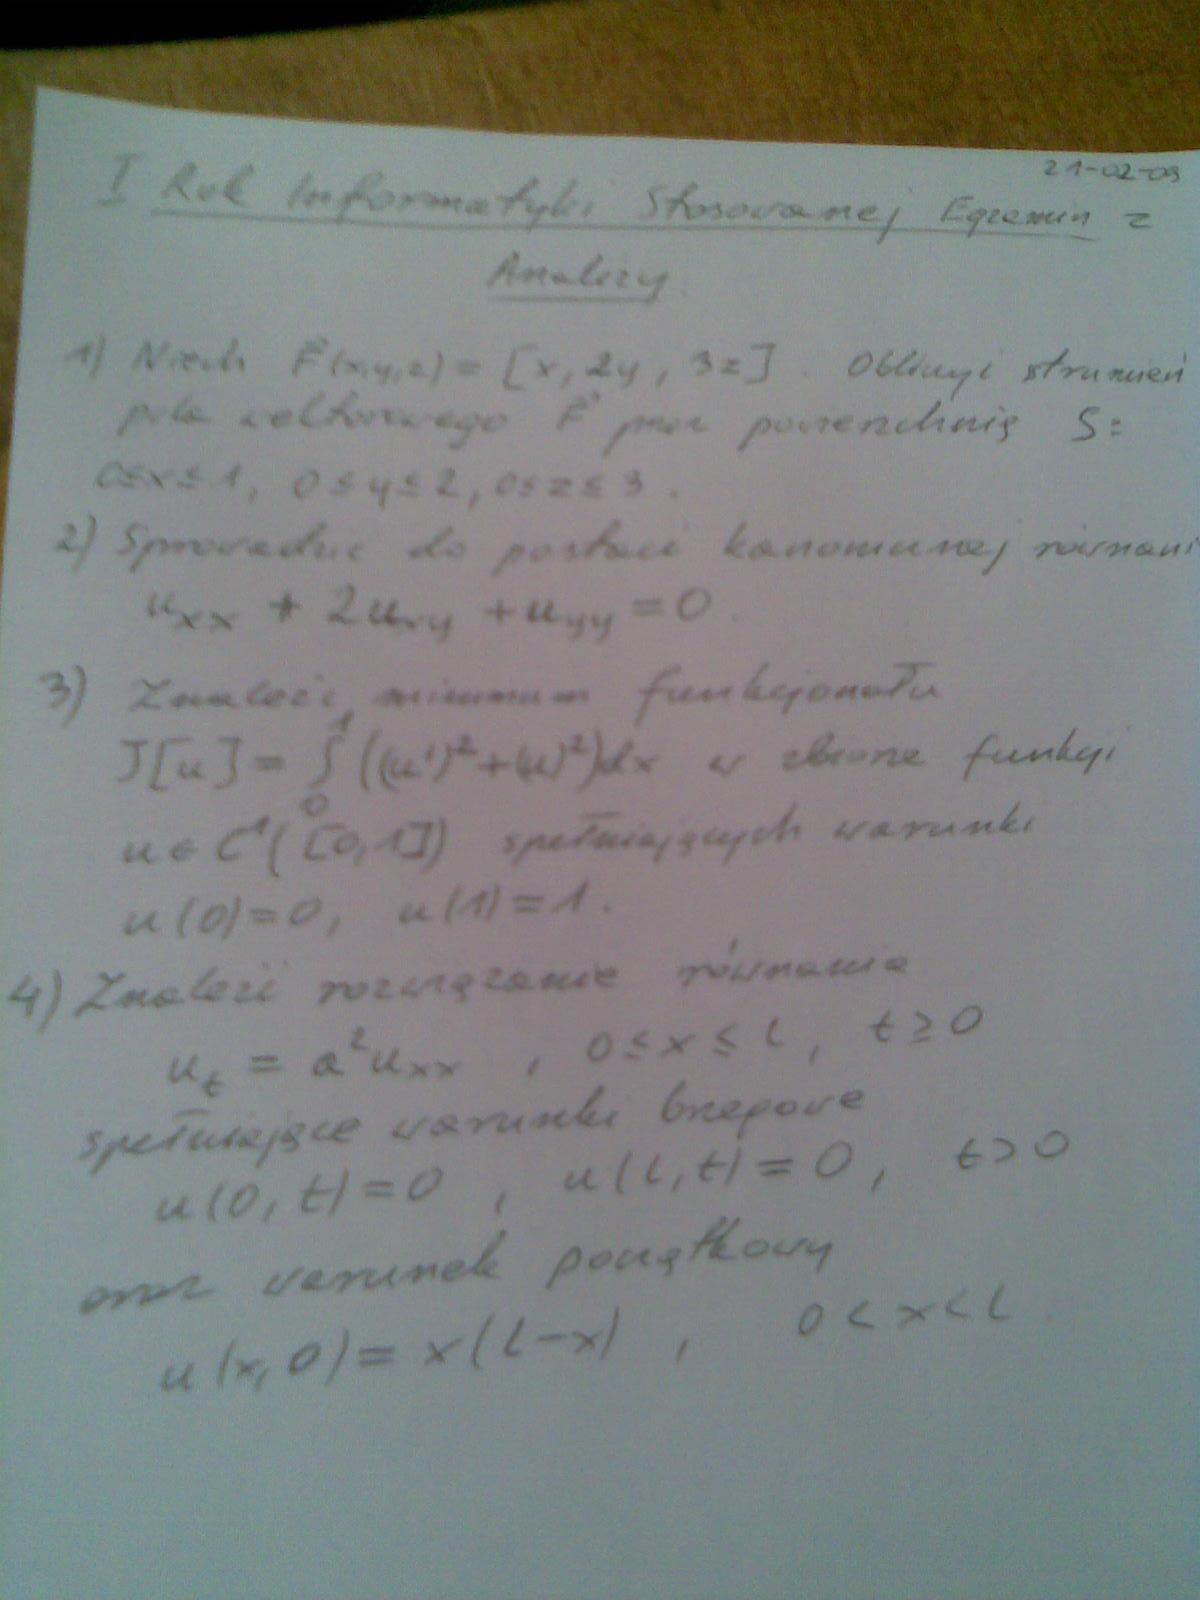 21-02-09
I Rok Informatyki Stosowanej Egzamin z
Analizy
1) Niech F⃗(x,y,z) = [x, 2y, 3z]. Obliczyć strumień
pola wektorowego F⃗ przez powierzchnię S:
0≤x≤1, 0≤y≤2, 0≤z≤3.
2) Sprowadzić do postaci kanonicznej równani
u_xx + 2u_xy + u_yy = 0.
3) Znaleźć minimum funkcjonału
J[u] = ∫₀¹ ((u')² + (u)²)dx w zbiorze funkcji
u ∈ C¹([0,1]) spełniających warunki
u(0)=0, u(1)=1.
4) Znaleźć rozwiązanie równania
u_t = a²u_xx , 0≤x≤L, t≥0
spełniające warunki brzegowe
u(0,t)=0 , u(L,t)=0, t>0
oraz warunek początkowy
u(x,0)= x(L-x) , 0<x<L.